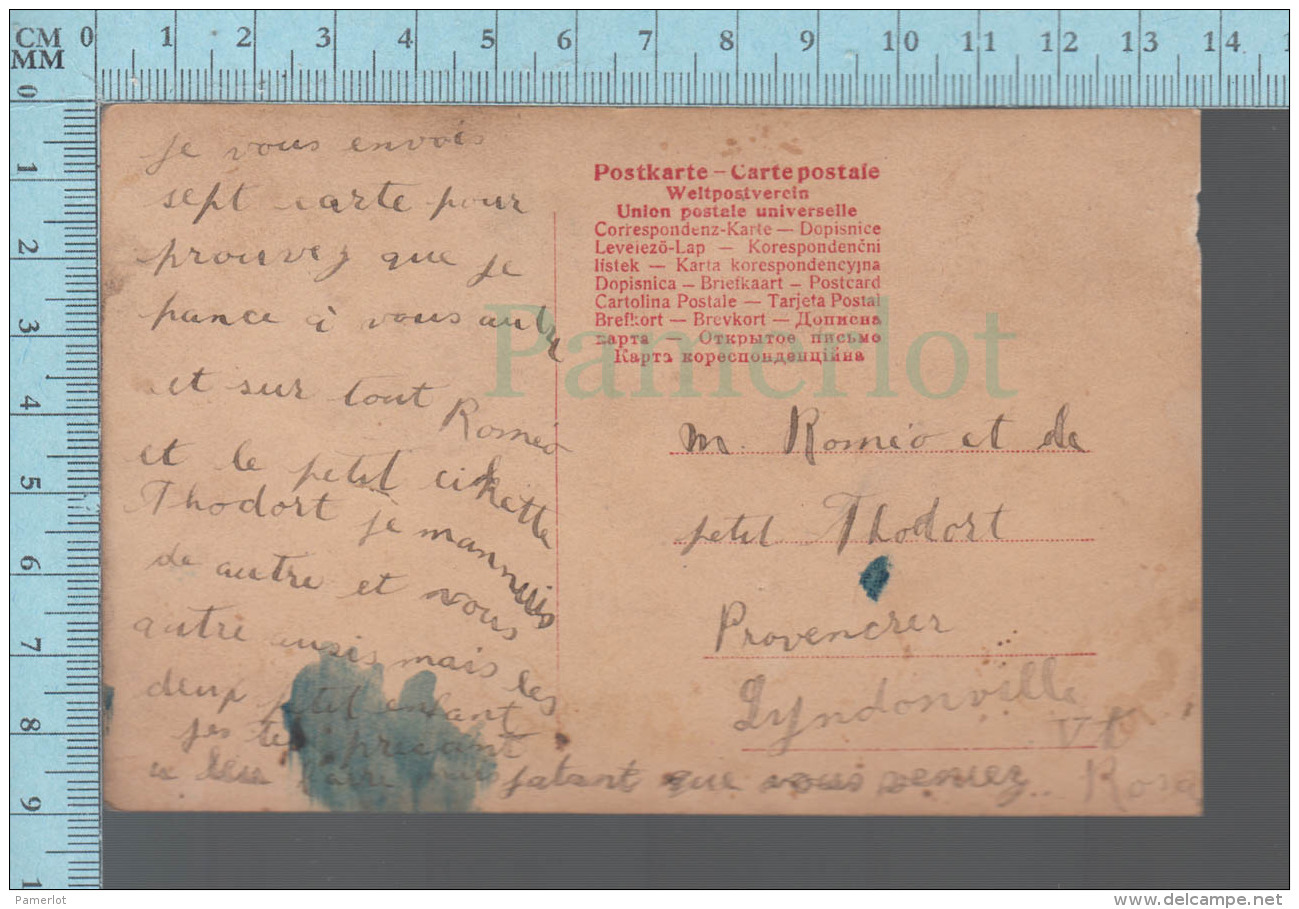 je vous envois
sept carte pour
prouvez que je
pance à vous autre
et sur tout Roméo
et le petit
Thodort je mannuis
de autre et vous
autre ausis mais les
deux petit enfant
presant
fatant que vous venez Rosa
Postkarte – Carte postale
Weltpostverein
Union postale universelle
Correspondenz-Karte — Dopisnice
Levelező-Lap — Korespondenční
listek — Karta korespondencyjna
Dopisnica — Briefkaart — Postcard
Cartolina Postale — Tarjeta Postal
Brefkort — Brevkort — Дописна
карта — Открытое письмо
Картъ кореспонденційна
m. Roméo et de
petit Thodort
Provencrer
Lyndonville
Vt
Pamerlot
CM 0 1 2 3 4 5 6 7 8 9 10 11 12 13 14 1
MM
0 1 2 3 4 5 6 7 8 9 1
Pamerlot
www.delcampe.net